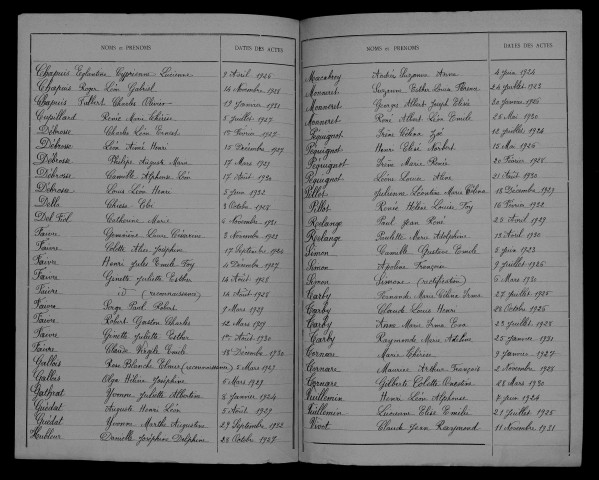 NOMS et PRÉNOMS DATES DES ACTES
Chapuis Eglantine Cyprienne Lucienne 9 Avril 1926
Chapuis Roger Léon Gabriel 14 Novembre 1928
Chapuis Albert Charles Olivier 19 Janvier 1931
Cupillard Renée Marie Thérèse 5 Juillet 1927
Débrosse Charles Léon Ernest 1er Février 1927
Débrosse Léon Aimé Henri 15 Décembre 1927
Débrosse Philippe Auguste Marie 17 Mars 1929
Débrosse Camille Alphonse Léon 17 Août 1930
Débrosse Louis Léon Henri 5 Juin 1932
Delle 3 Octobre 1928
Del Fol Catherine Marie 6 Novembre 1931
Faivre Geneviève Laure 3 Novembre 1923
Faivre Colette Alice Joséphine 17 Septembre 1924
Faivre Henri Jules Emile Foy 4 Décembre 1927
Faivre Ginette Juliette Esther 14 Août 1928
Faivre id (reconnaissance) 14 Août 1928
Faivre Serge Paul Robert 9 Mars 1929
Faivre Robert Gaston Charles 12 Mars 1929
Faivre Ginette Juliette Esther 1er Août 1930
Faivre Claude Virgile Emile 18 Décembre 1930
Gallois Rose Blanche (reconnaissance) 2 Mars 1927
Gallois Olga Hélène Joséphine 6 Mars 1929
Gathrat Yvonne Juliette Albertine 6 Janvier 1924
Guédat Auguste Henri Léon 5 Août 1929
Guédat Yvonne Marthe Augustine 29 Septembre 1932
Danielle Joséphine Delphine 28 Octobre 1927
NOMS et PRÉNOMS DATES DES ACTES
André Suzanne Anna 4 Juin 1924
Monneret Suzanne Esther Louise Florence 24 Juillet 1923
Monneret Georges Albert Joseph Elisé 30 Janvier 1926
Monneret René Albert Léon Emile 26 Mai 1930
Péquignot Irène Célina Zoé 12 Juillet 1924
Péquignot Henri Elisé Norbert 15 Mai 1926
Péquignot Irène Marie Renée 20 Février 1928
Péquignot Léone Louise Aline 21 Août 1930
Pillot Julienne Léontine Marie Célina 18 Décembre 1929
Pillot Renée Hélène Louise Foy 16 Février 1932
Roslange Paul Jean René 26 Avril 1929
Roslange Paulette Marie Adolphine 13 Avril 1930
Simon Camille Gustave Emile 5 Juin 1923
Simon Apolline Françoise 9 Juillet 1926
Simon Simone (rectification) 5 Mars 1931
Tarby Fernande Marie Célina Irma 27 Juillet 1925
Tarby Claude Louis Henri 28 Octobre 1926
Tarby Anne Marie Irma Eva 23 Juillet 1928
Tarby Raymonde Marie Adeline 25 Janvier 1931
Tornare Marie Thérèse 9 Janvier 1927
Tornare Maurice Arthur François 2 Novembre 1928
Tornare Gilberte Colette 28 Mars 1930
Vuillemin Henri Léon Alphonse 7 Juin 1924
Vuillemin Lucienne Elise Emilie 21 Juillet 1925
Claude Jean Raymond 11 Novembre 1931